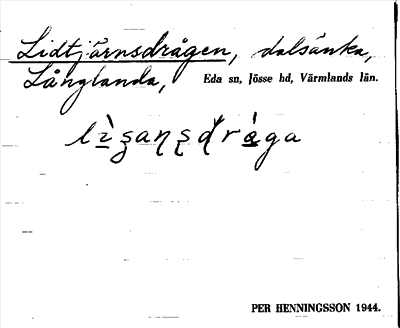 Lidtjärnsdrågen, dalsänka,
Långlanda, Eda sn, Jösse hd, Värmlands län.
PER HENNINGSSON 1944.